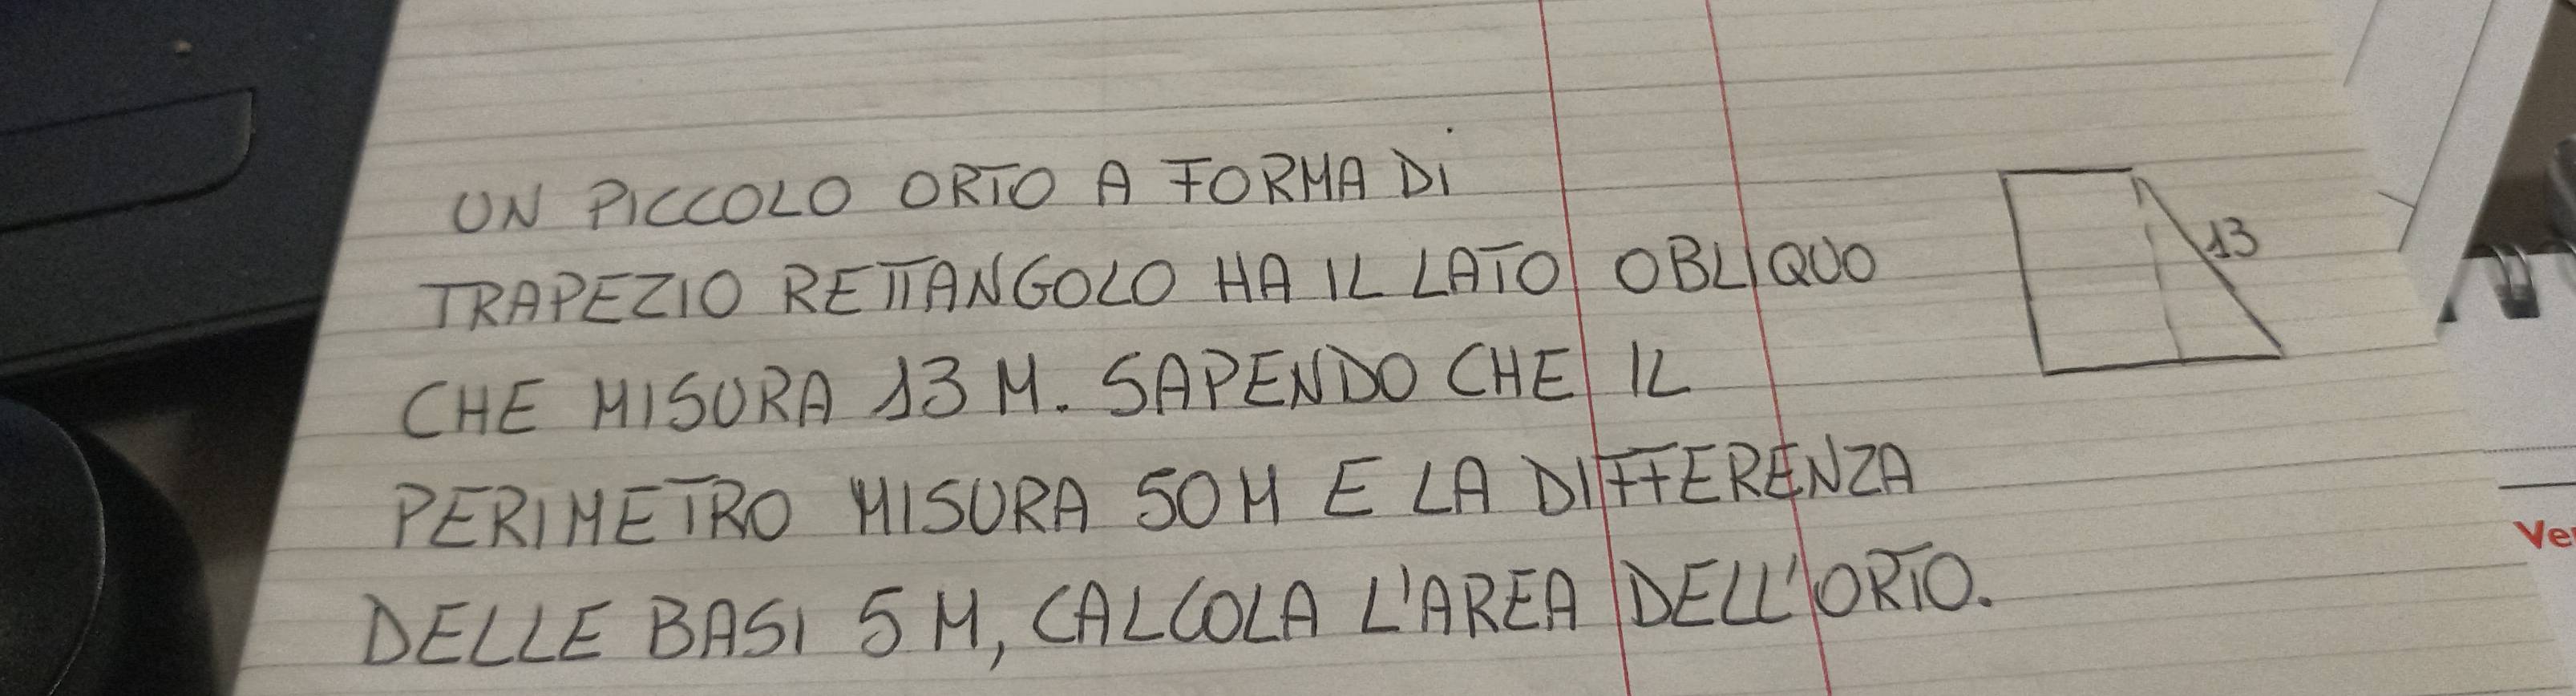 UN PICCOLO ORTO A FORMA DI
TRAPEZIO RETTANGOLO HA IL LATO OBLIQUO
CHE MISURA 13 M. SAPENDO CHE IL
PERIMETRO MISURA 50 M E LA DIFFERENZA
DELLE BASI 5 M, CALCOLA L'AREA DELL'ORTO.
13